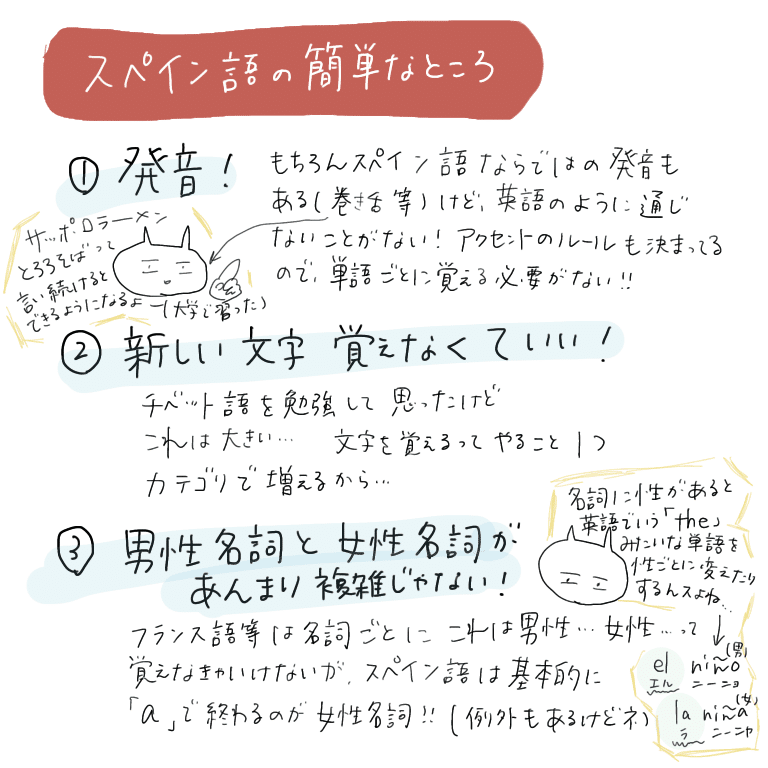 スペイン語の簡単なところ
① 発音！
もちろんスペイン語ならではの発音も
ある(巻き舌等)けど、英語のように通じ
ないことがない！アクセントのルールも決まってる
ので、単語ごとに覚える必要がない!!
サッポロラーメン
とろろそばって
言い続けると
できるようになるよー(大学で習った)
② 新しい文字 覚えなくていい！
チベット語を勉強して思ったけど
これは大きい… 文字を覚えるってやること1つ
カテゴリで増えるから…
③ 男性名詞と女性名詞が
あんまり複雑じゃない！
フランス語等は名詞ごとにこれは男性…女性…って
覚えなきゃいけないが、スペイン語は基本的に
「a」で終わるのが女性名詞!!(例外もあるけどネ)
名詞に性があると
英語でいう「the」
みたいな単語を
性ごとに変えたり
するんスよね…
el niño (男)
エル ニーニョ
la niña (女)
ラ ニーニャ